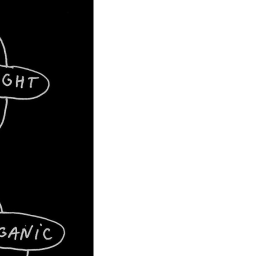 GHT
GANiC